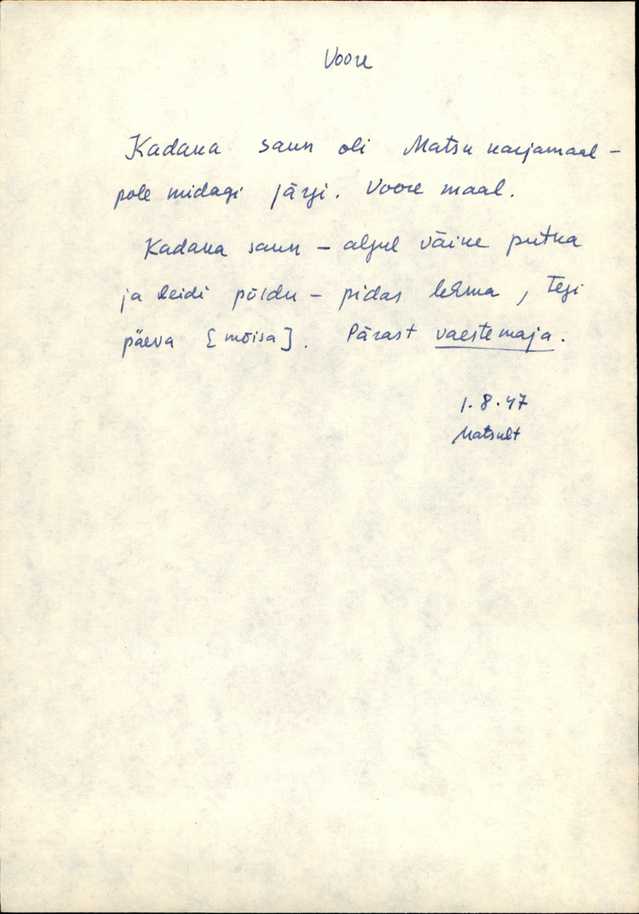 Voore
Kadaka saun oli Matsu karjamaal –
pole midagi järgi. Voore maal.
Kadaka saun – algul väike putka
ja leidi põldu – pidas lehma, tegi
päeva [mõisa]. Pärast vaestemaja.
1.8.47
Matsult